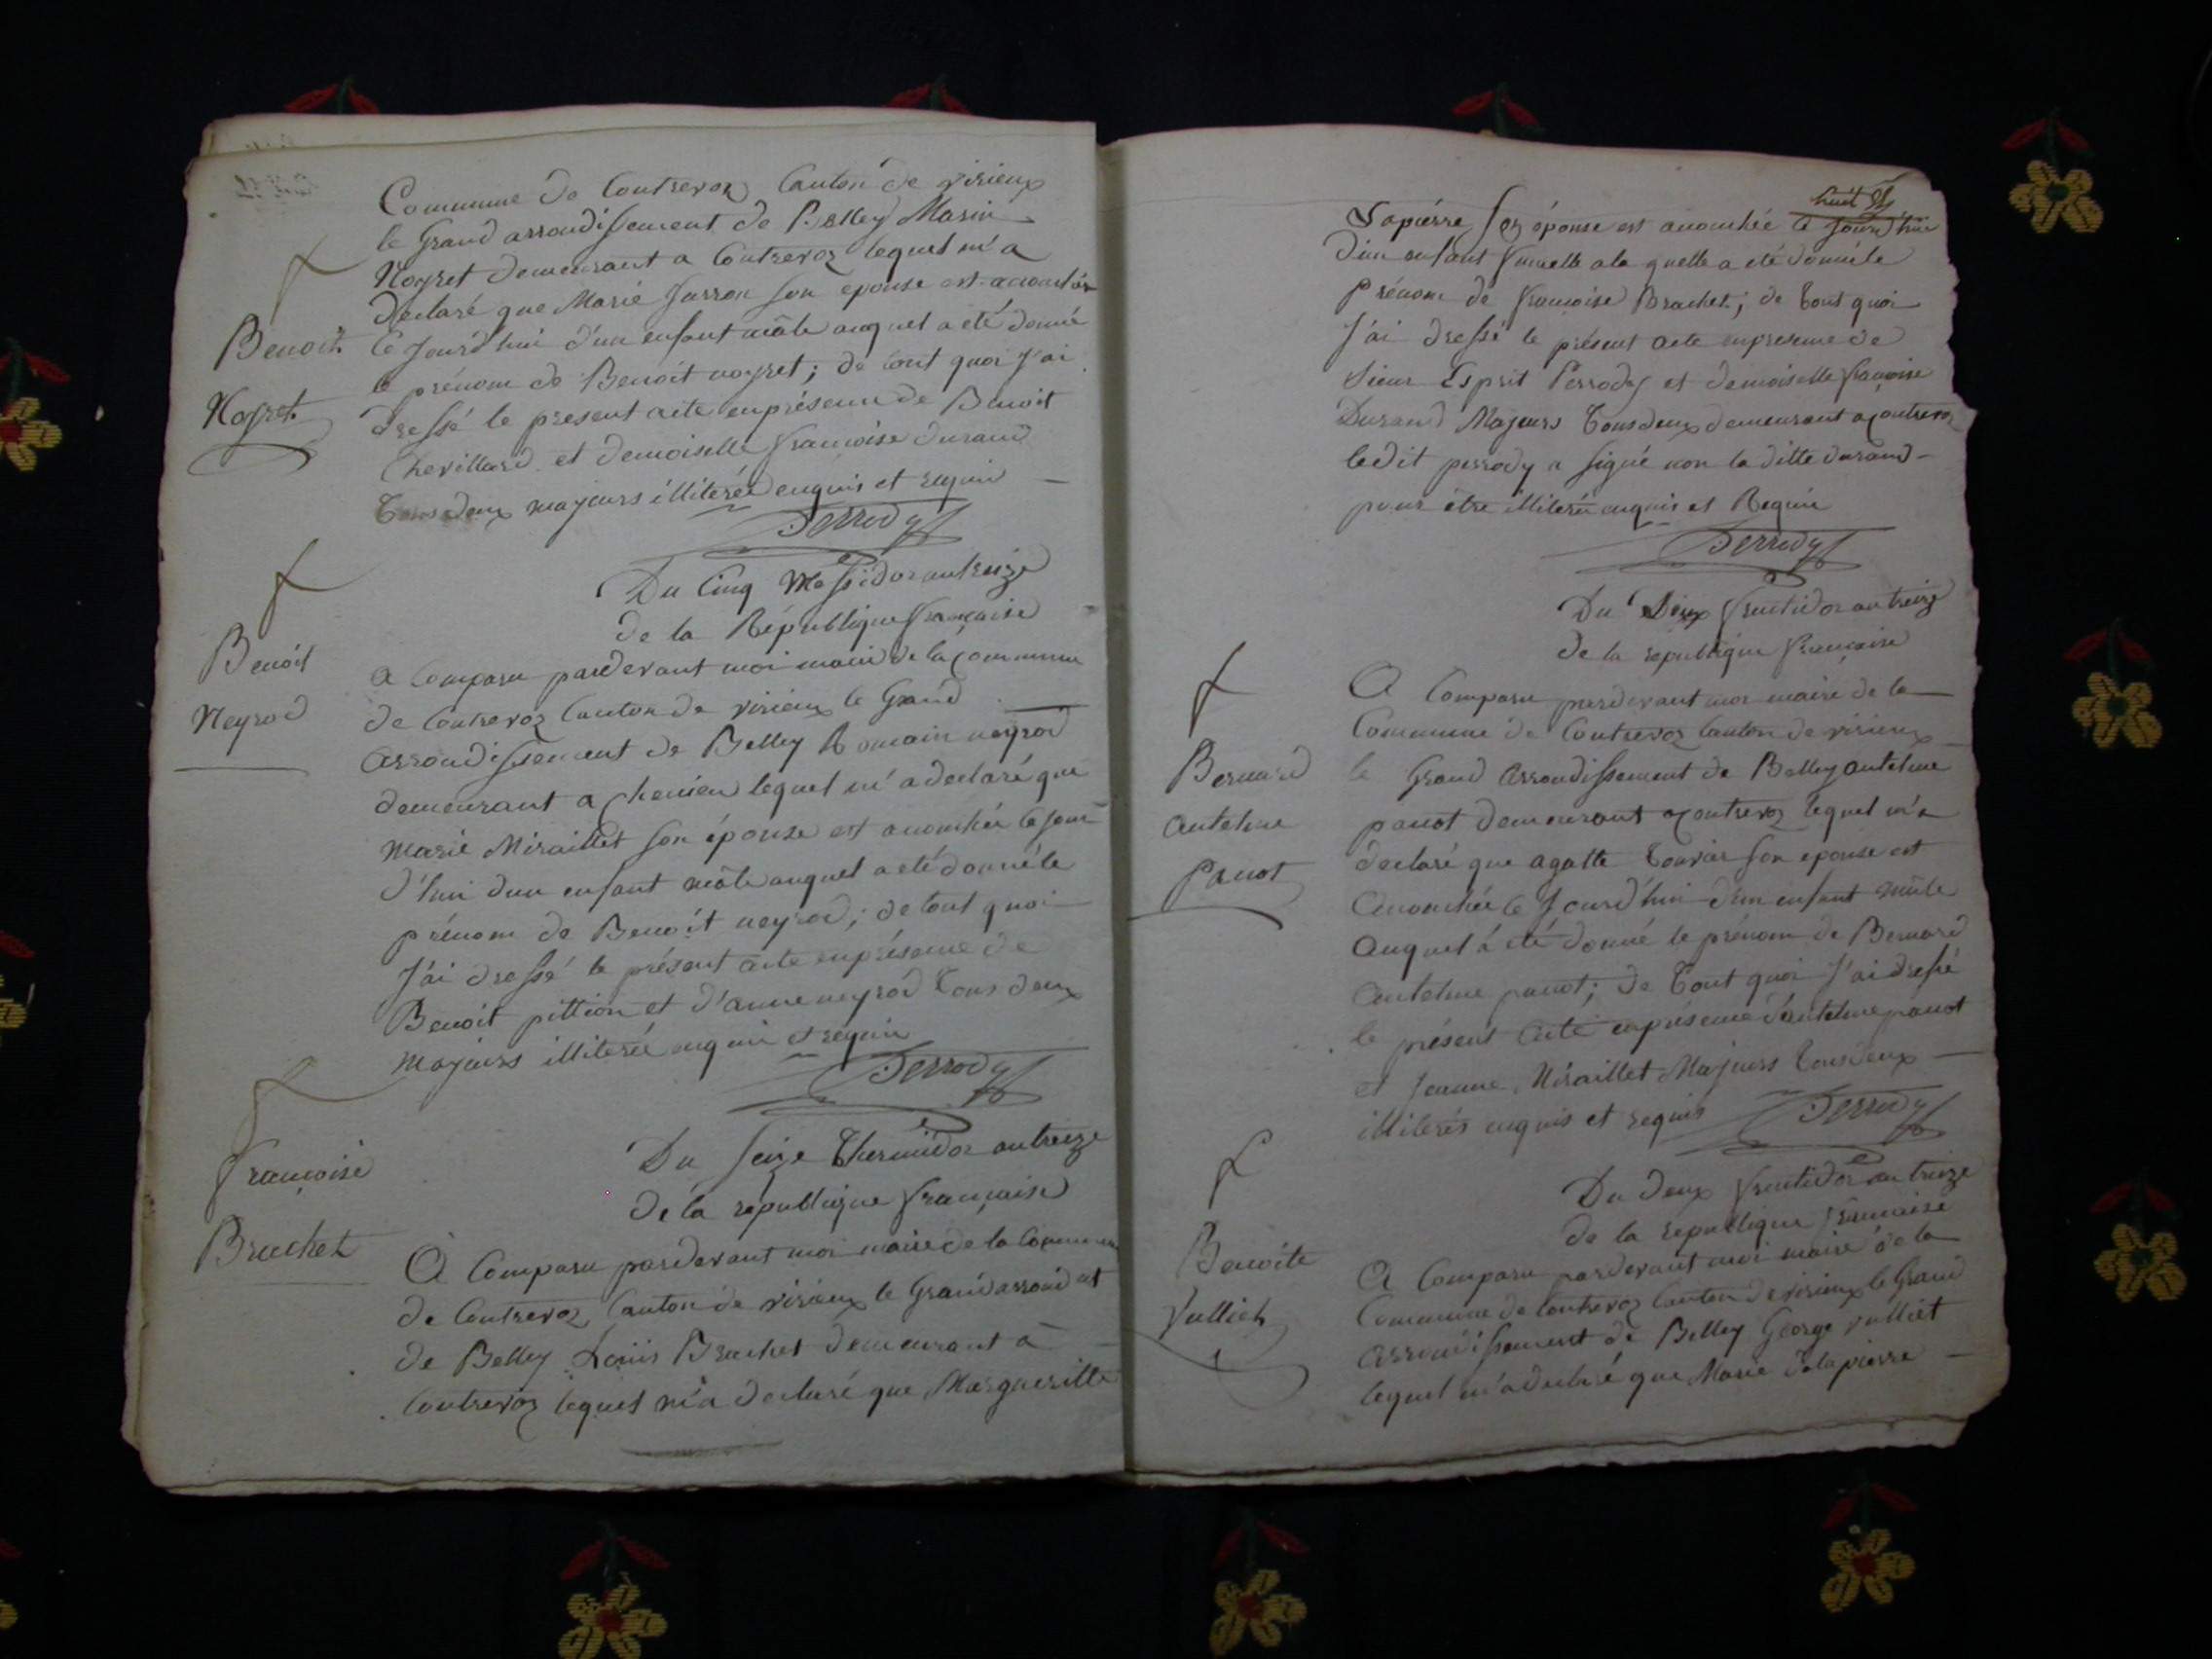 Commune de Contrevoz Canton de virieux
le Grand arrondissement de Belley Marin
Noyret demeurant a Contrevoz lequel m'a
declaré que Marie Jarron son epouse est accouchée
Benoit
ce jourd'hui d'un enfant mâle auquel a eté donné
le prénom de Benoit noyret; de tout quoi j'ai
Noyret
dressé le present acte enprésence de Benoit
Chevillard et demoiselle francoise durand
tous deux majeurs illiterés enquis et requis
Perrody
Du Cinq Messidor an treize
de la République française
Benoit
Neyrod
a Comparu pardevant moi maire de la commune
de Contrevoz Canton de virieux le Grand
arrondissement de Belley Romain neyrod
demeurant a cheuieu lequel m'a declaré que
marie Miraillet son épouse est accouchée ce jour
d'hui d'un enfant mâle auquel a eté donné le
prénom de Benoit neyrod; de tout quoi
j'ai dressé le présent acte enprésence de
Benoit pittion et d'anne neyrod tous deux
majeurs illiterés enquis et requis
Perrody
Du seize thermidor an treize
de la république française
françoise
Brachet
A Comparu pardevant moi maire de la Commune
de Contrevoz Canton de virieux le Grand arrond.nt
de Belley Louis Brachet demeurant a
Contrevoz lequel m'a declaré que Margueritte
huit
Sapierre son épouse est accouchée ce jourd'hui
d'un enfant femelle a la quelle a eté donné le
prénom de francoise Brachet; de tout quoi
J'ai dressé le présent acte enpresence de
sieur Esprit Perrody et demoiselle francoise
Durand Majeurs tous deux demeurant a Contrevoz
ledit perrody a signé non la ditte durand
pour être illiterée enquis et Requise
Perrody
Du Deux fructidor an treize
de la république francaise
A Comparu pardevant moi maire de la
Commune de Contrevoz Canton de virieux
Bernard
le Grand arrondissement de Belley antelme
antelme
panot demeurant a Contrevoz lequel m'a
Panot
declaré que agatte son epouse est
accouchée ce jourd'hui d'un enfant mâle
auquel a eté donné le prénom de Bernard
antelme panot; de tout quoi j'ai dressé
le présent acte enpresence d'antelme panot
et jeanne Miraillet Majeurs tous deux
illiterés enquis et requis
Perrody
Du deux fructidor an treize
de la republique francaise
Benoite
Vulliet
A Comparu pardevant moi maire de la
Commune de Contrevoz Canton de virieux le Grand
arrondissement de Belley George vulliet
lequel m'a declaré que Marie delapierre